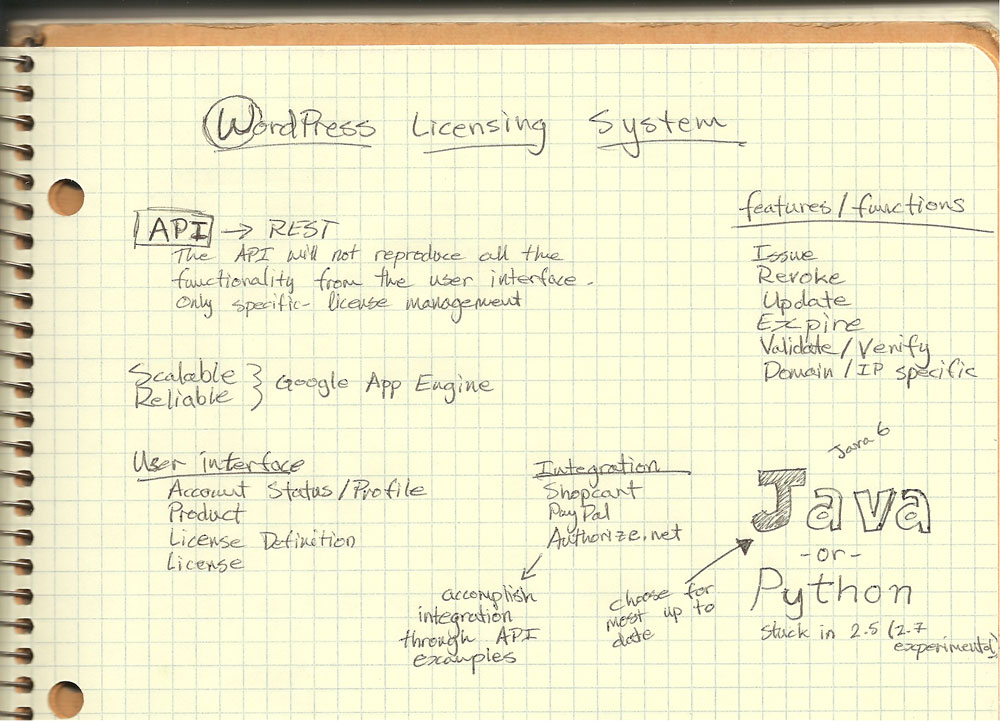 WordPress Licensing System
API → REST
The API will not reproduce all the
functionality from the user interface.
Only specific - license management
Scalable
Reliable
} Google App Engine
features/functions
Issue
Revoke
Update
Expire
Validate/Verify
Domain/IP specific
User interface
Account Status/Profile
Product
License Definition
License
Integration
Shopcart
PayPal
Authorize.net
accomplish
integration
through API
examples
Java 6
Java
-or-
Python
stuck in 2.5 (2.7
experimental)
choose for
most up to
date